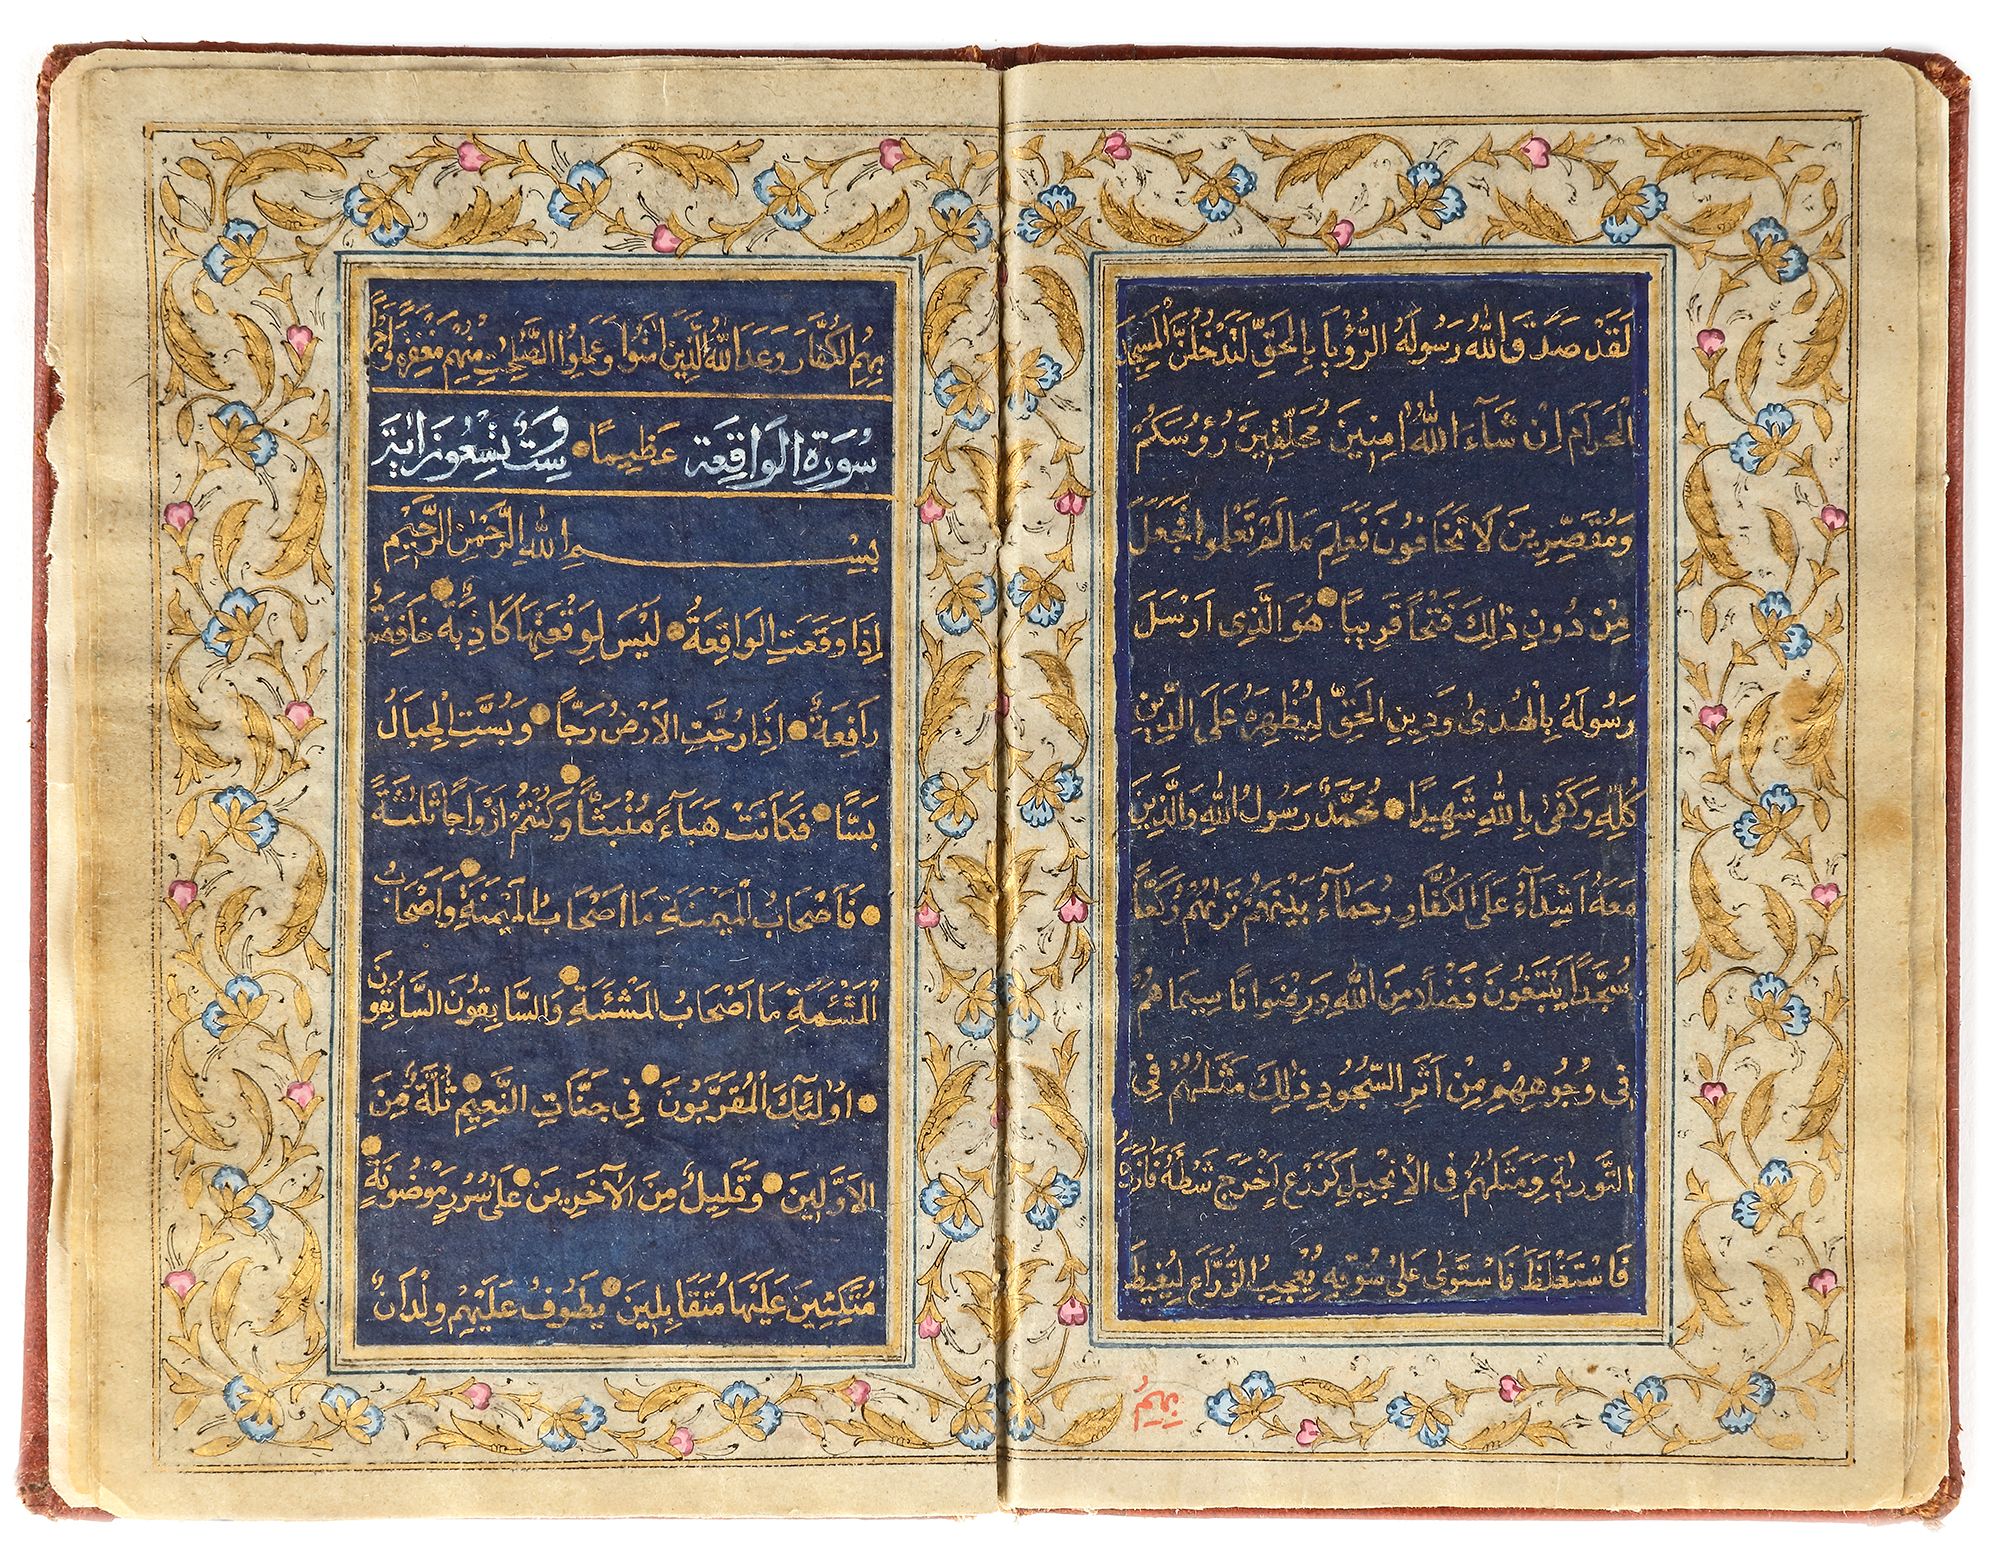 لَقَدْ صَدَقَ اللّٰهُ رَسُولَهُ الرُّؤْيَا بِالْحَقِّ لَتَدْخُلُنَّ الْمَسْجِدَ
الْحَرَامَ اِنْ شَآءَ اللّٰهُ اٰمِنِينَ مُحَلِّقِينَ رُؤُسَكُمْ
وَمُقَصِّرِينَ لَا تَخَافُونَ فَعَلِمَ مَا لَمْ تَعْلَمُوا فَجَعَلَ
مِنْ دُونِ ذٰلِكَ فَتْحًا قَرِيبًا هُوَ الَّذِى اَرْسَلَ
رَسُولَهُ بِالْهُدٰى وَدِينِ الْحَقِّ لِيُظْهِرَهُ عَلَى الدِّينِ
كُلِّهِ وَكَفٰى بِاللّٰهِ شَهِيدًا مُحَمَّدٌ رَسُولُ اللّٰهِ وَالَّذِينَ
مَعَهُ اَشِدَّآءُ عَلَى الْكُفَّارِ رُحَمَآءُ بَيْنَهُمْ تَرٰيهُمْ رُكَّعًا
سُجَّدًا يَبْتَغُونَ فَضْلًا مِنَ اللّٰهِ وَرِضْوَانًا سِيمَاهُمْ
فِى وُجُوهِهِمْ مِنْ اَثَرِ السُّجُودِ ذٰلِكَ مَثَلُهُمْ فِى
التَّوْرٰيةِ وَمَثَلُهُمْ فِى الْاِنْجِيلِ كَزَرْعٍ اَخْرَجَ شَطْئَهُ فَاٰزَرَهُ
فَاسْتَغْلَظَ فَاسْتَوٰى عَلٰى سُوقِهِ يُعْجِبُ الزُّرَّاعَ لِيَغِيظَ
بِهِمُ
بِهِمُ الْكُفَّارَ وَعَدَ اللّٰهُ الَّذِينَ اٰمَنُوا وَعَمِلُوا الصَّالِحَاتِ مِنْهُمْ مَغْفِرَةً وَاَجْرًا
سُورَةُ الْوَاقِعَة عَظِيمًا سِتٌّ وَتِسْعُونَ اٰيَة
بِسْمِ اللّٰهِ الرَّحْمٰنِ الرَّحِيمِ
اِذَا وَقَعَتِ الْوَاقِعَةُ لَيْسَ لِوَقْعَتِهَا كَاذِبَةٌ خَافِضَةٌ
رَافِعَةٌ اِذَا رُجَّتِ الْاَرْضُ رَجًّا وَبُسَّتِ الْجِبَالُ
بَسًّا فَكَانَتْ هَبَآءً مُنْبَثًّا وَكُنْتُمْ اَزْوَاجًا ثَلٰثَةً
فَاَصْحَابُ الْمَيْمَنَةِ مَا اَصْحَابُ الْمَيْمَنَةِ وَاَصْحَابُ
الْمَشْئَمَةِ مَا اَصْحَابُ الْمَشْئَمَةِ وَالسَّابِقُونَ السَّابِقُونَ
اُولٰئِكَ الْمُقَرَّبُونَ فِى جَنَّاتِ النَّعِيمِ ثُلَّةٌ مِنَ
الْاَوَّلِينَ وَقَلِيلٌ مِنَ الْاٰخِرِينَ عَلٰى سُرُرٍ مَوْضُونَةٍ
مُتَّكِئِينَ عَلَيْهَا مُتَقَابِلِينَ يَطُوفُ عَلَيْهِمْ وِلْدَانٌ